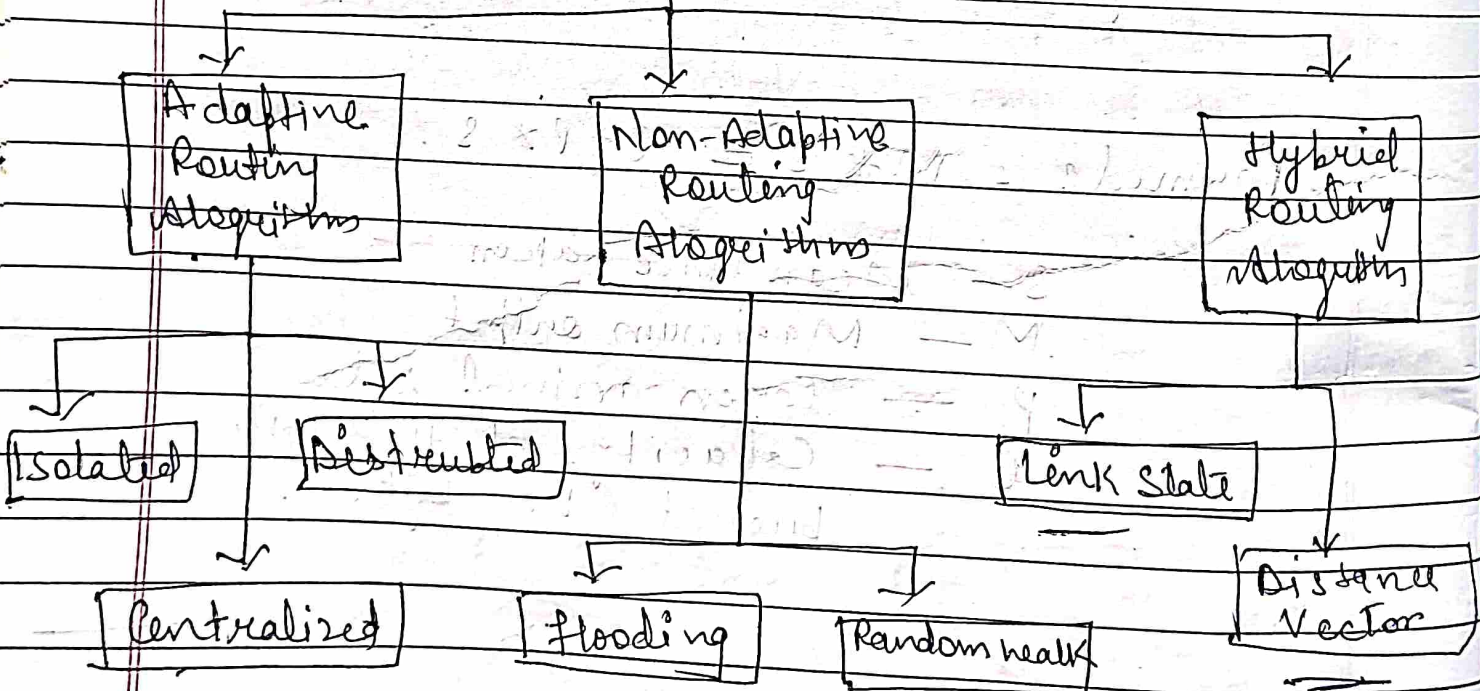 Adaptive
Routing
Alogrithms
Non-Adaptive
Routing
Alogrithms
Hybrid
Routing
Alogrithm
Isolated
Distrubted
Link State
Centralized
flooding
Random walk
Distance
Vector